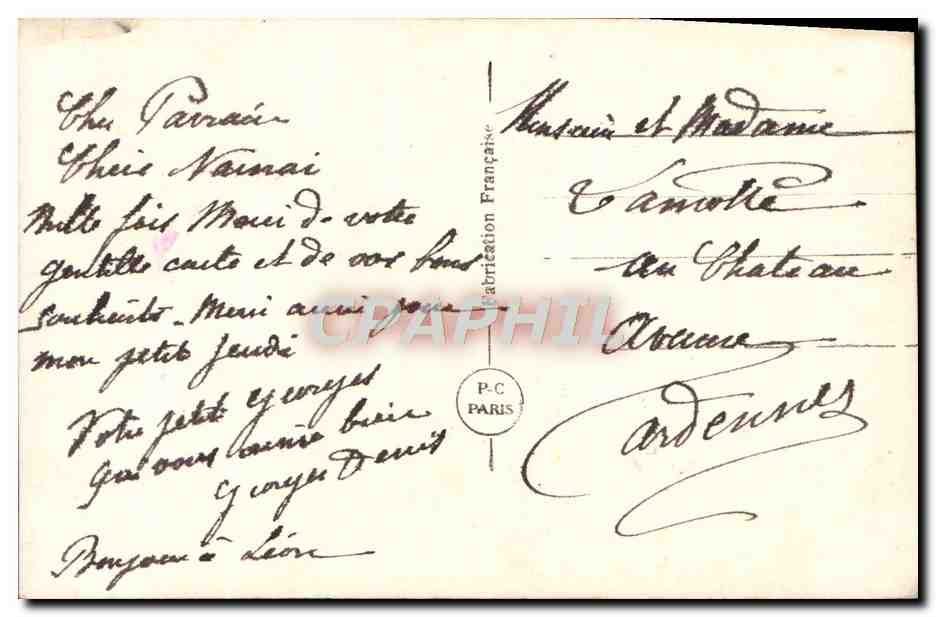 Cher Parrain
Chère Nainai
Mille fois Merci de votre
gentille carte et de vos bons
souhaits - Merci aussi pour
mon petit jeudi
Votre petit Georges
qui vous aime bien
Georges Denis
Bonjour à Léon
Fabrication Française
P-C
PARIS
Monsieur et Madame
Lamotte
au Chateau
Ardennes
CPAPHIL